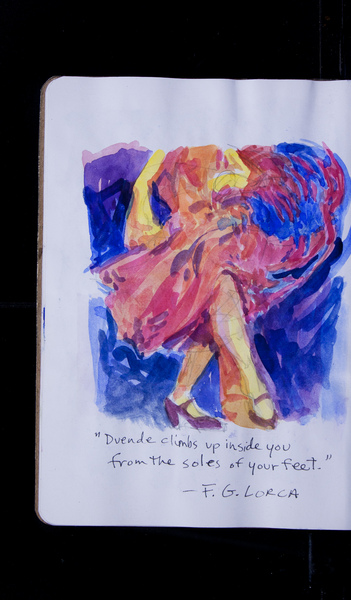 "Duende climbs up inside you
from the soles of your feet."
— F. G. LORCA